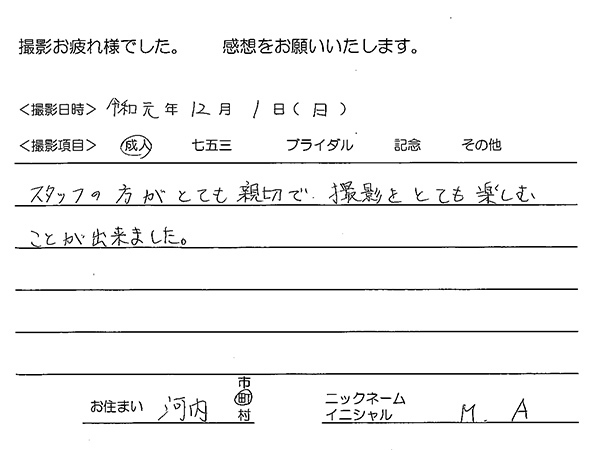 撮影お疲れ様でした。 感想をお願いいたします。
<撮影日時> 令和元年 12月 1日(日)
<撮影項目> 成人 七五三 ブライダル 記念 その他
スタッフの方がとても親切で、撮影をとても楽しむ
ことが出来ました。
お住まい 河内 市町村 ニックネーム イニシャル M. A